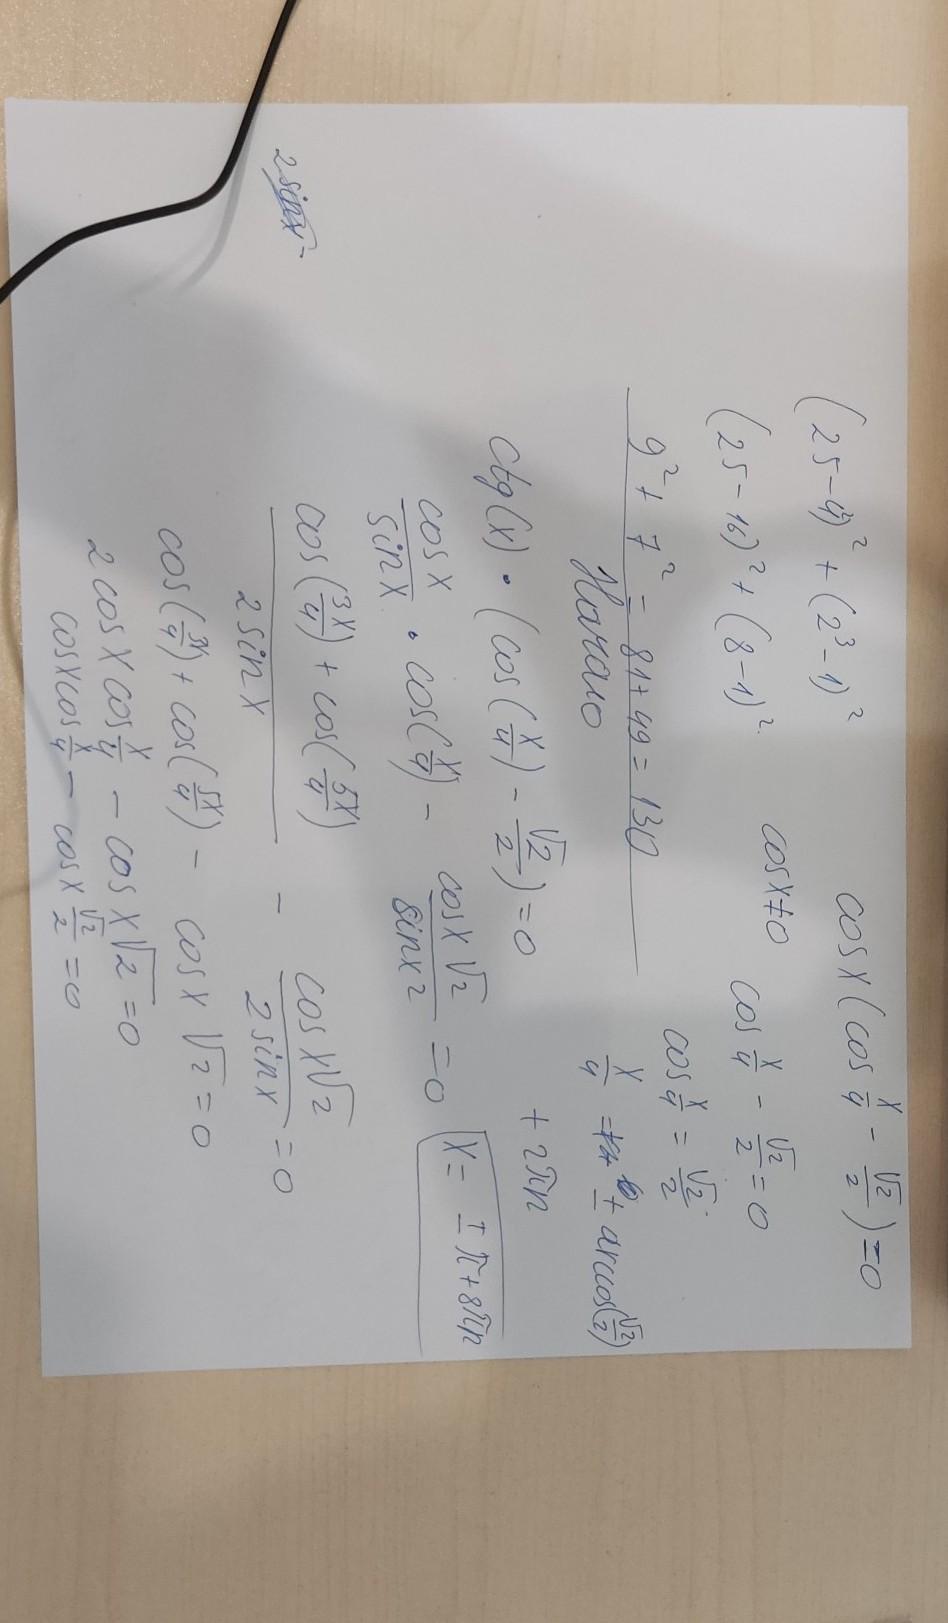 (25-4²)² + (2³-1)²
(25-16)² + (8-1)².
9² + 7² = 81+49 = 130
ctg(x) · (cos(x/4) - √2/2) = 0
cosx/sinx · cos(x/4) - cosx√2/sinx2 = 0
cos(3x/4) + cos(5x/4) / 2sinx - cosx√2/2sinx = 0
cos(3x/4) + cos(5x/4) - cosx√2 = 0
2cosx cos x/4 - cosx√2 = 0
cosx cos x/4 - cosx √2/2 = 0
cosx(cos x/4 - √2/2) = 0
cosx≠0
cos x/4 - √2/2 = 0
cos x/4 = √2/2.
x/4 = ± arccos(√2/2)
+ 2πn
x = ±π+8πn
2sinx